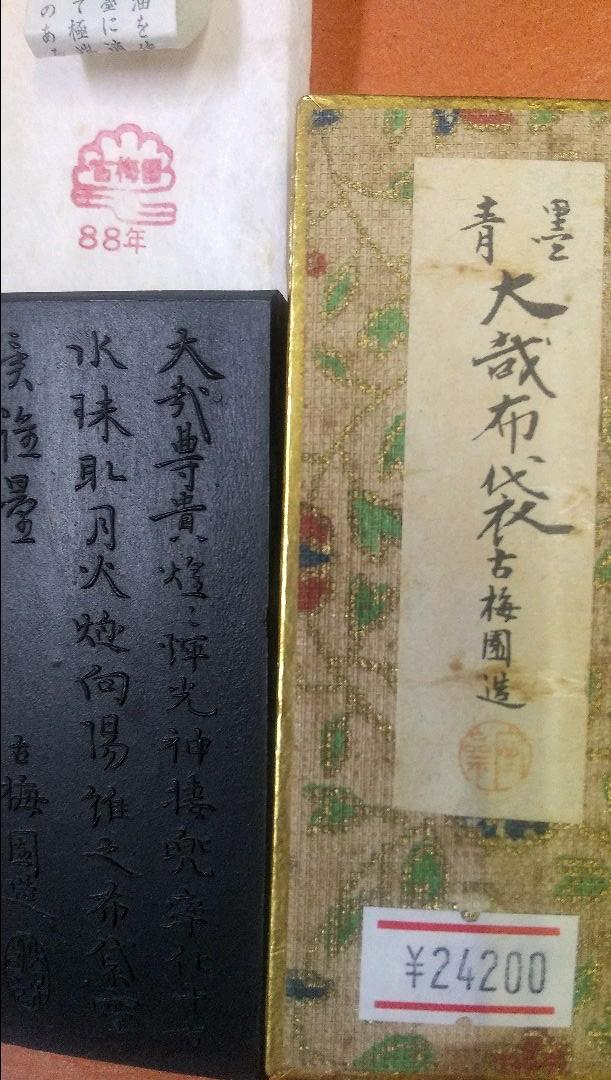 青墨
大哉布袋 古梅園造
¥24200
古梅園
88年
大哉尊貴煌々輝光神棲兜率化
水珠取月火燧向陽維之布袋
古梅園造
油を
て極
のある